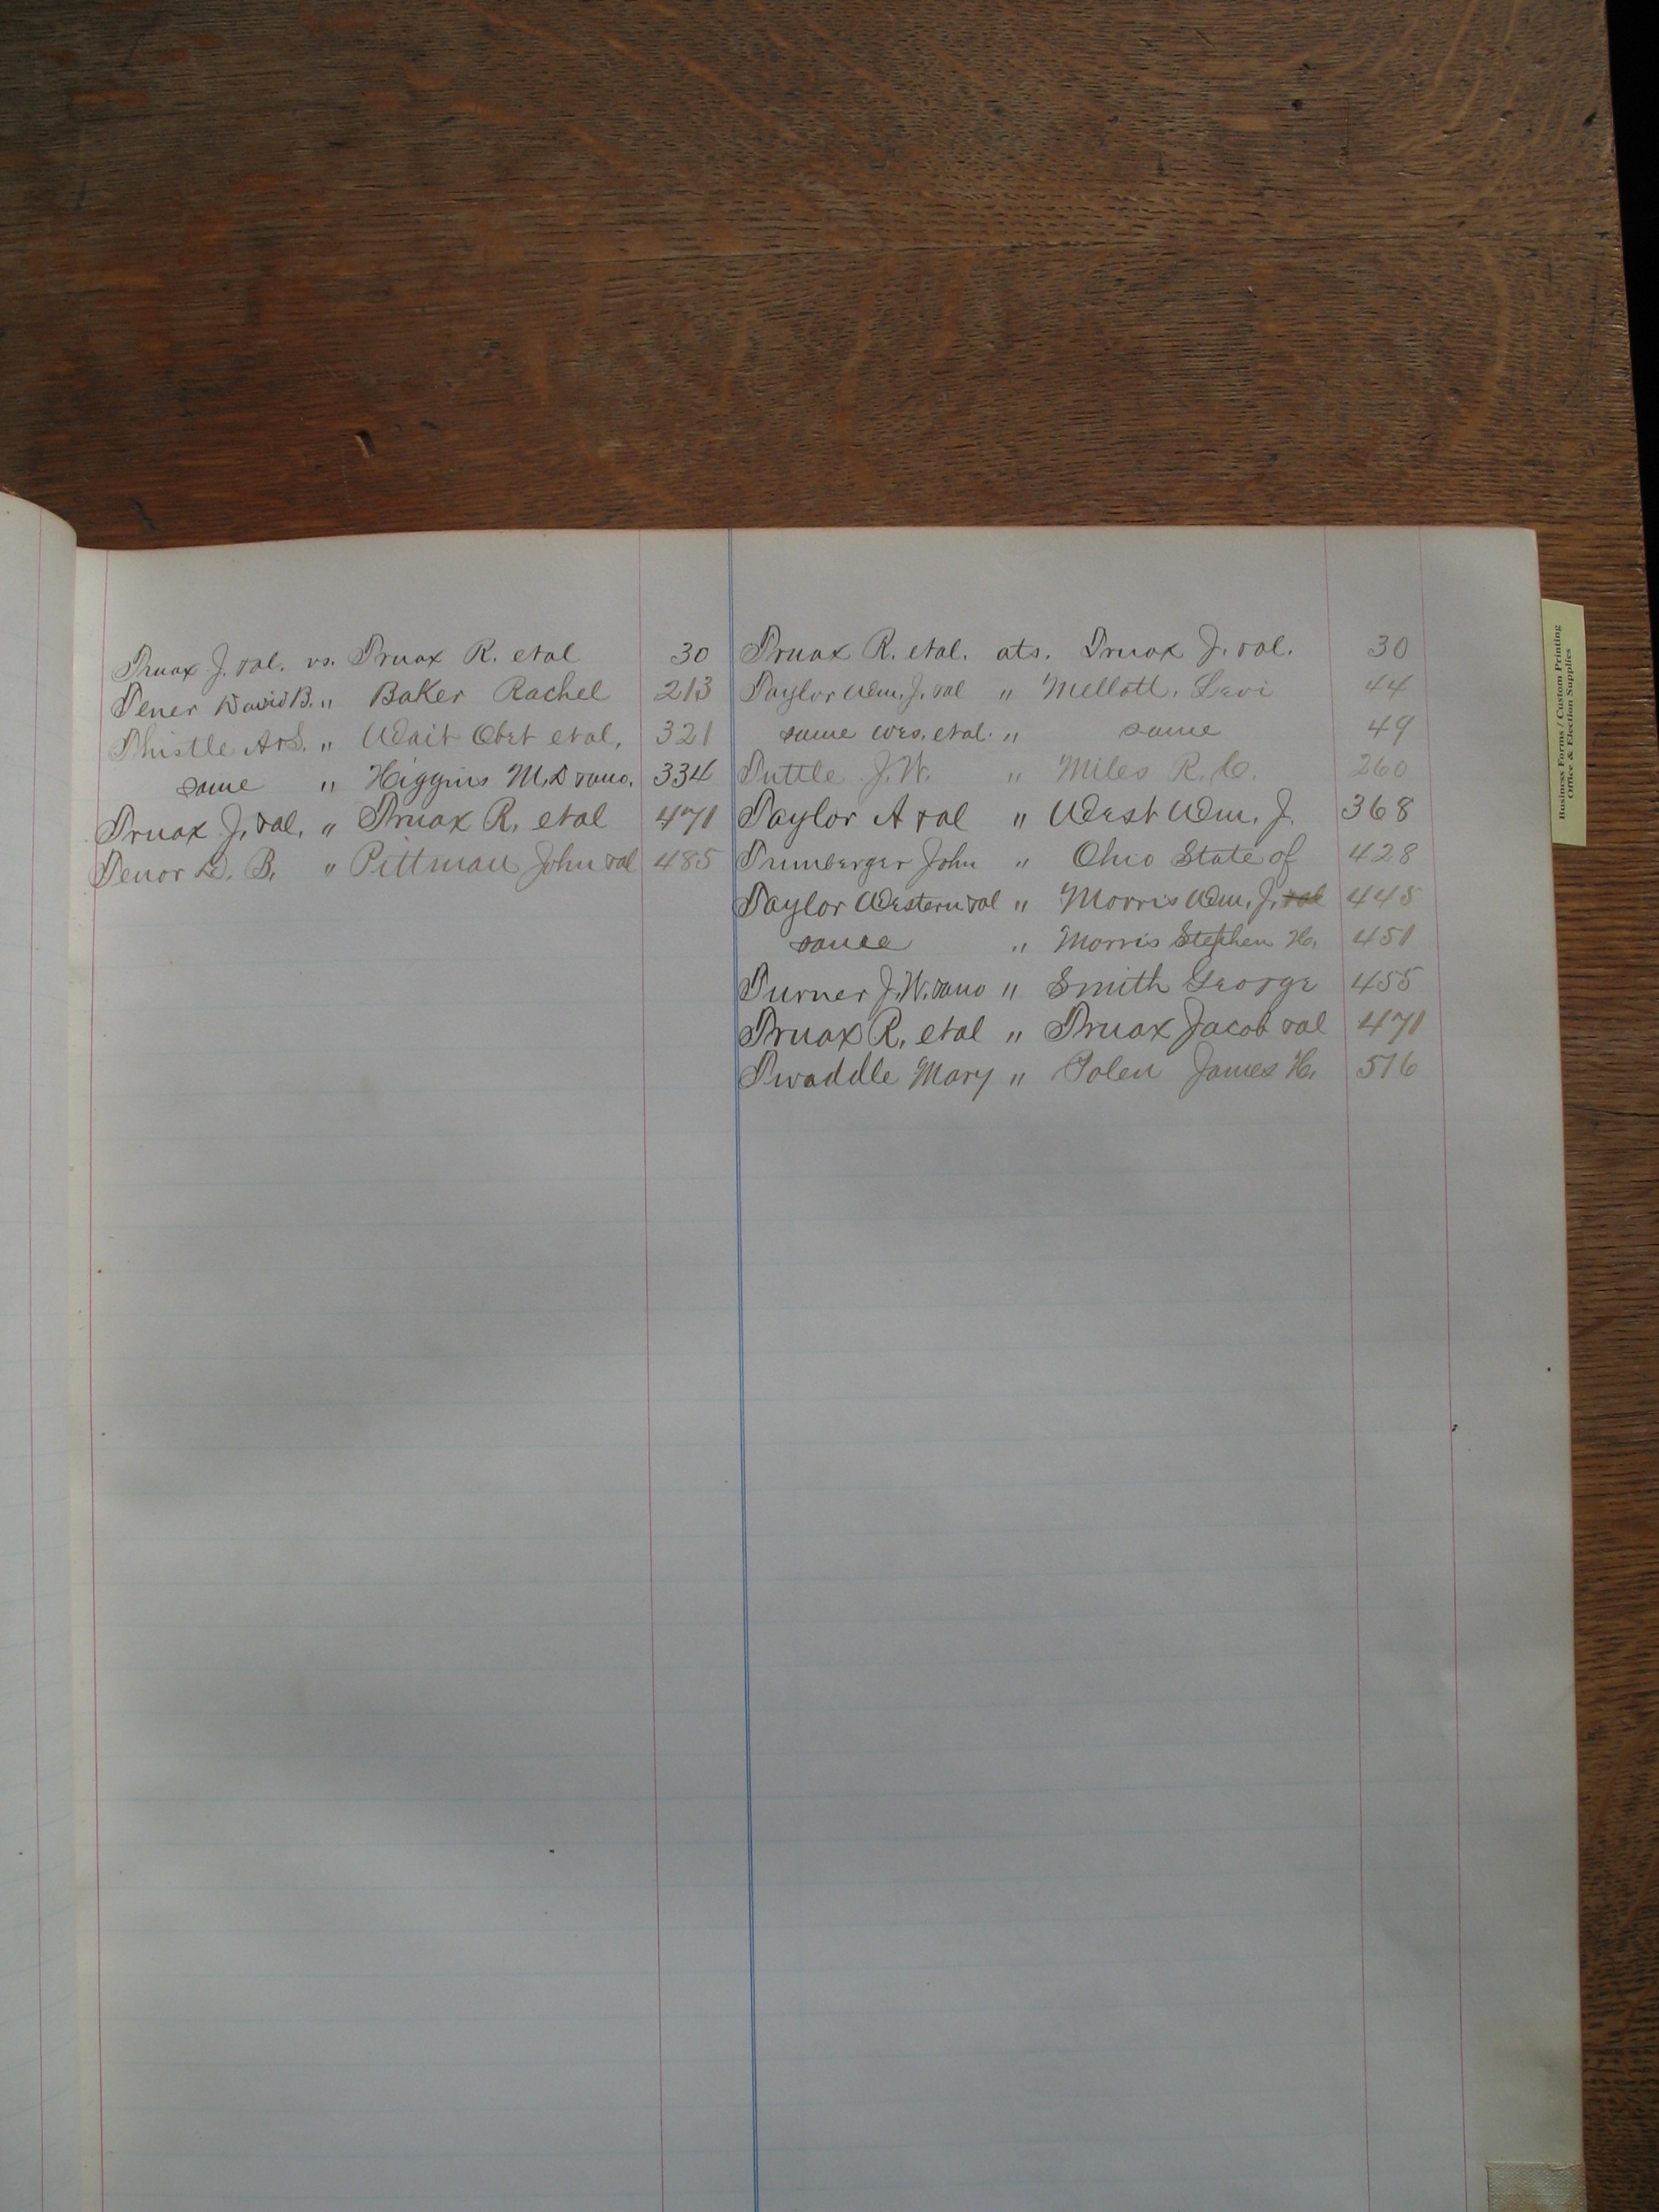 Truax J. &al. vs. Truax R. etal 30
Tener David B. " Baker Rachel 213
Thistle A&S. " Wait Obet etal, 321
same " Higgins M.D &ano. 334
Truax J, &al, " Truax R, etal 471
Tenor D. B, " Pittman John &al 485
Truax R. etal. ats. Truax J. &al. 30
Taylor Wm. J. &al " Mellott, Levi 44
same Wes. etal. " same 49
Tuttle J.W. " Miles R. C. 260
Taylor A &al " West Wm, J. 368
John " Ohio State of 428
Taylor Western &al " Morris Wm, J, &al 445
same " Morris Stephen H, 451
Turner J.W. &ano " Smith George 455
Truax R, etal " Truax Jacob &al 471
Twaddle Mary " Polen James H, 516
Business Forms / Custom Printing
Office & Election Supplies